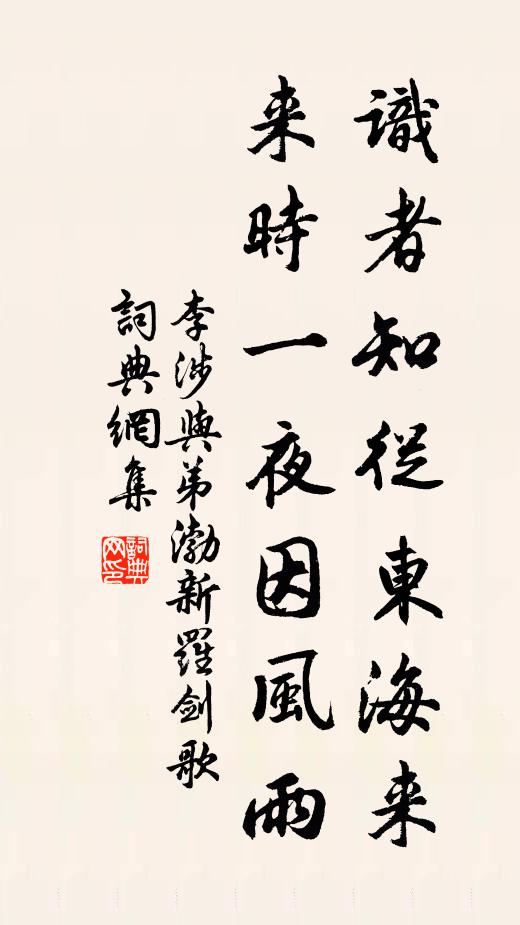 識者知從東海来
来時一夜因風雨
李涉與弟渤新羅剑歌
詞典網集
詞典网印